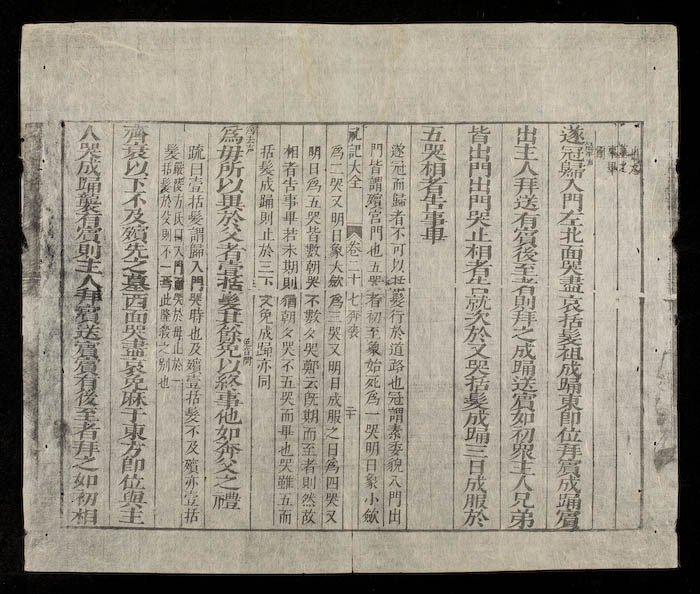 遂冠歸入門左北面哭盡哀括髮袒成踊東即位拜賔成踊賔
出主人拜送有賔後至者則拜之成踊送賔如初衆主人兄弟
皆出門出門哭止相者告就次於又哭括髮成踊三日成服於
五哭相者告事畢
遂冠而歸者不可以括髮行於道路也冠謂素委貌入門出
門皆謂殯宫門也五哭者初至象始死為一哭明日象小歛
禮記大全 卷二十七奔喪 二十
為二哭又明日象大歛為三哭又明日成服之日為四哭又
明日為五哭皆數朝哭不數夕哭鄭云既期而至者則然故
相者告事畢若未期則猶朝夕哭不五哭而畢也哭雖五而
括髮成踊則止於三下文免成踊亦同
為母所以異於父者壹括髮其餘免以終事他如奔父之禮
疏曰壹括髮謂歸入門哭時也及殯壹括髮不及殯亦壹括
髮嚴陵方氏曰入門哭於母止於一
括髮於父則不一焉此隆殺之别也
齊衰以下不及殯先之墓西面哭盡哀免麻于東方即位與主
人哭成踊襲有賔則主人拜賔送賔賔有後至者拜之如初相